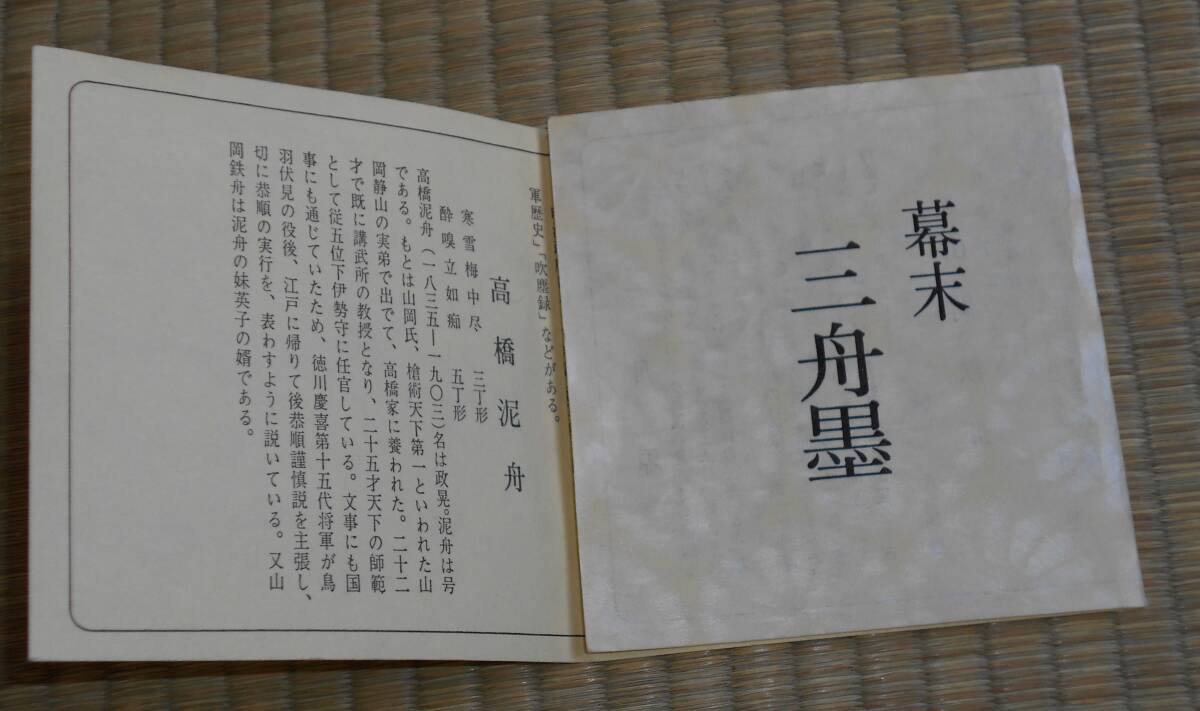 幕末
三舟墨
軍歴史」「吹塵録」などがある。
高橋泥舟
寒雪梅中尽 三丁形
酔嗅立如痴 五丁形
高橋泥舟(一八三五―一九〇三)名は政晃。泥舟は号
である。もとは山岡氏、槍術天下第一といわれた山
岡静山の実弟で出でて、高橋家に養われた。二十二
才で既に講武所の教授となり、二十五才天下の師範
として従五位下伊勢守に任官している。文事にも国
事にも通じていたため、徳川慶喜第十五代将軍が鳥
羽伏見の役後、江戸に帰りて後恭順謹慎説を主張し、
切に恭順の実行を、表わすように説いている。又山
岡鉄舟は泥舟の妹英子の婿である。